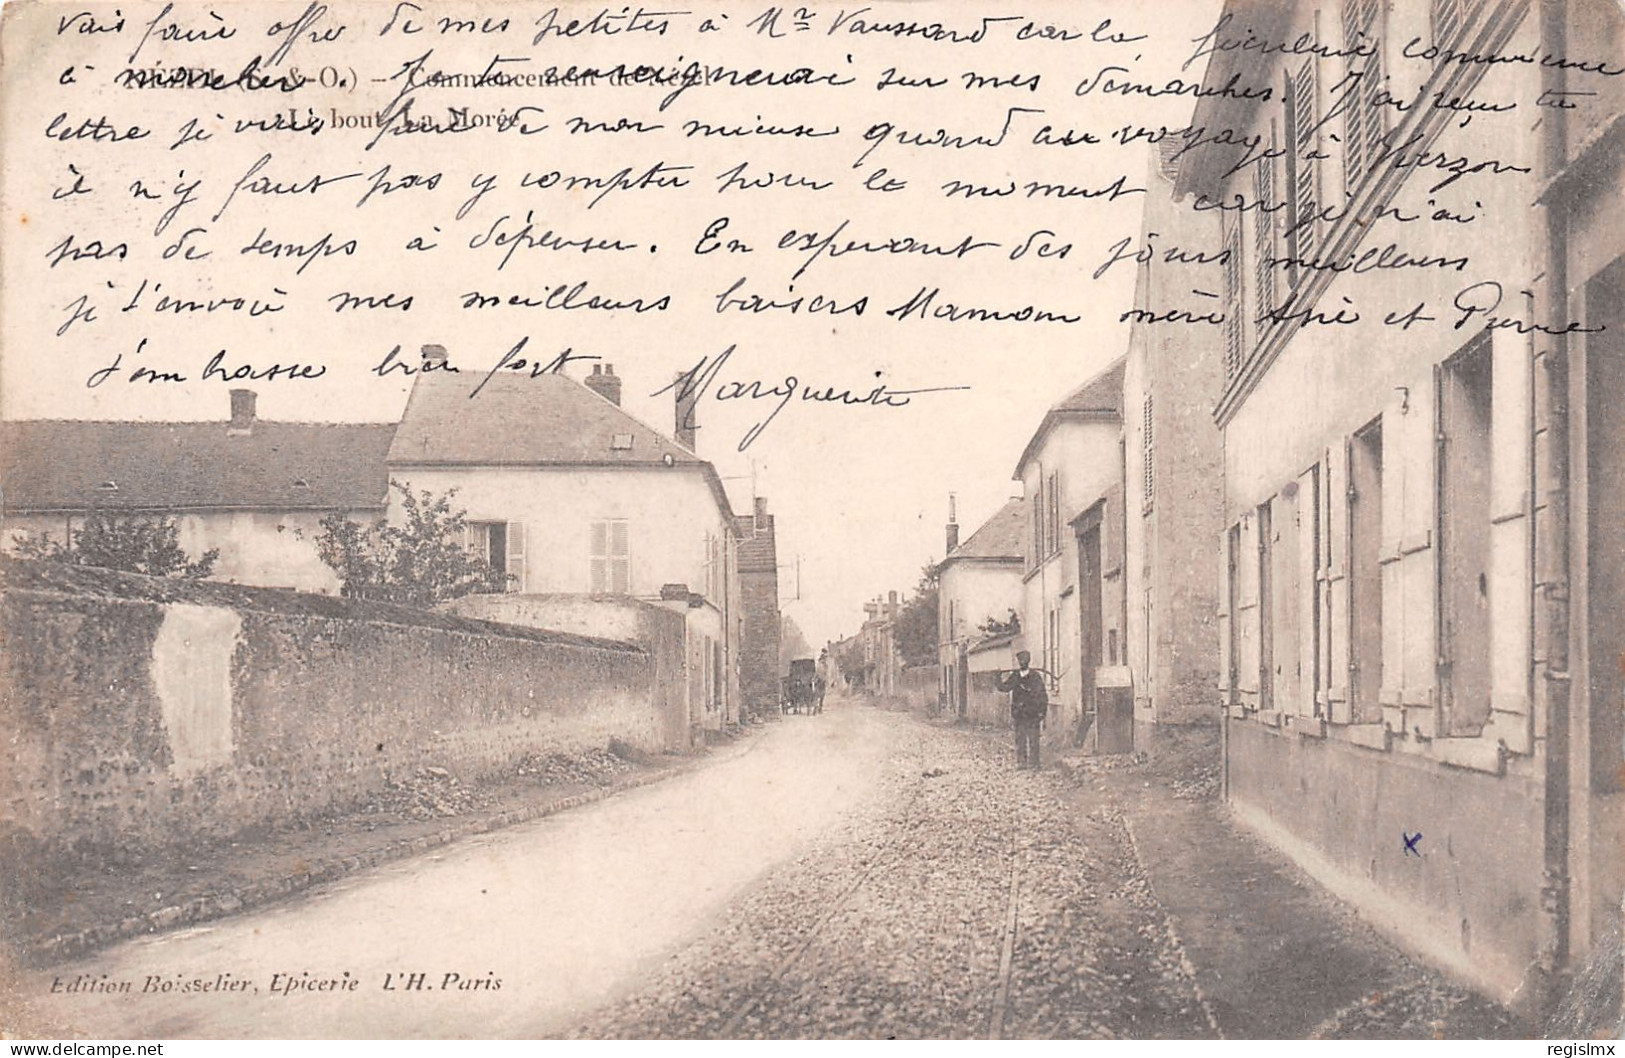 vais faire offre de mes petites à Mr Vaussard car la féculerie commence
à marcher. je te renseignerai sur mes démarches. J'ai reçu ta
RÉZEL (S.-&-O.) — Commencement de Rézel
lettre je vais faire de mon mieux quand au voyage à Vierzon
Le bout, La Morée
il n'y faut pas y compter pour le moment car je n'ai
pas de temps à dépenser. En espérant des jours meilleurs
je t'envoie mes meilleurs baisers Maman mère et Pierre
t'embrasse bien fort Marguerite
x
Edition Boisselier, Epicerie L'H. Paris
regislmx
www.delcampe.net